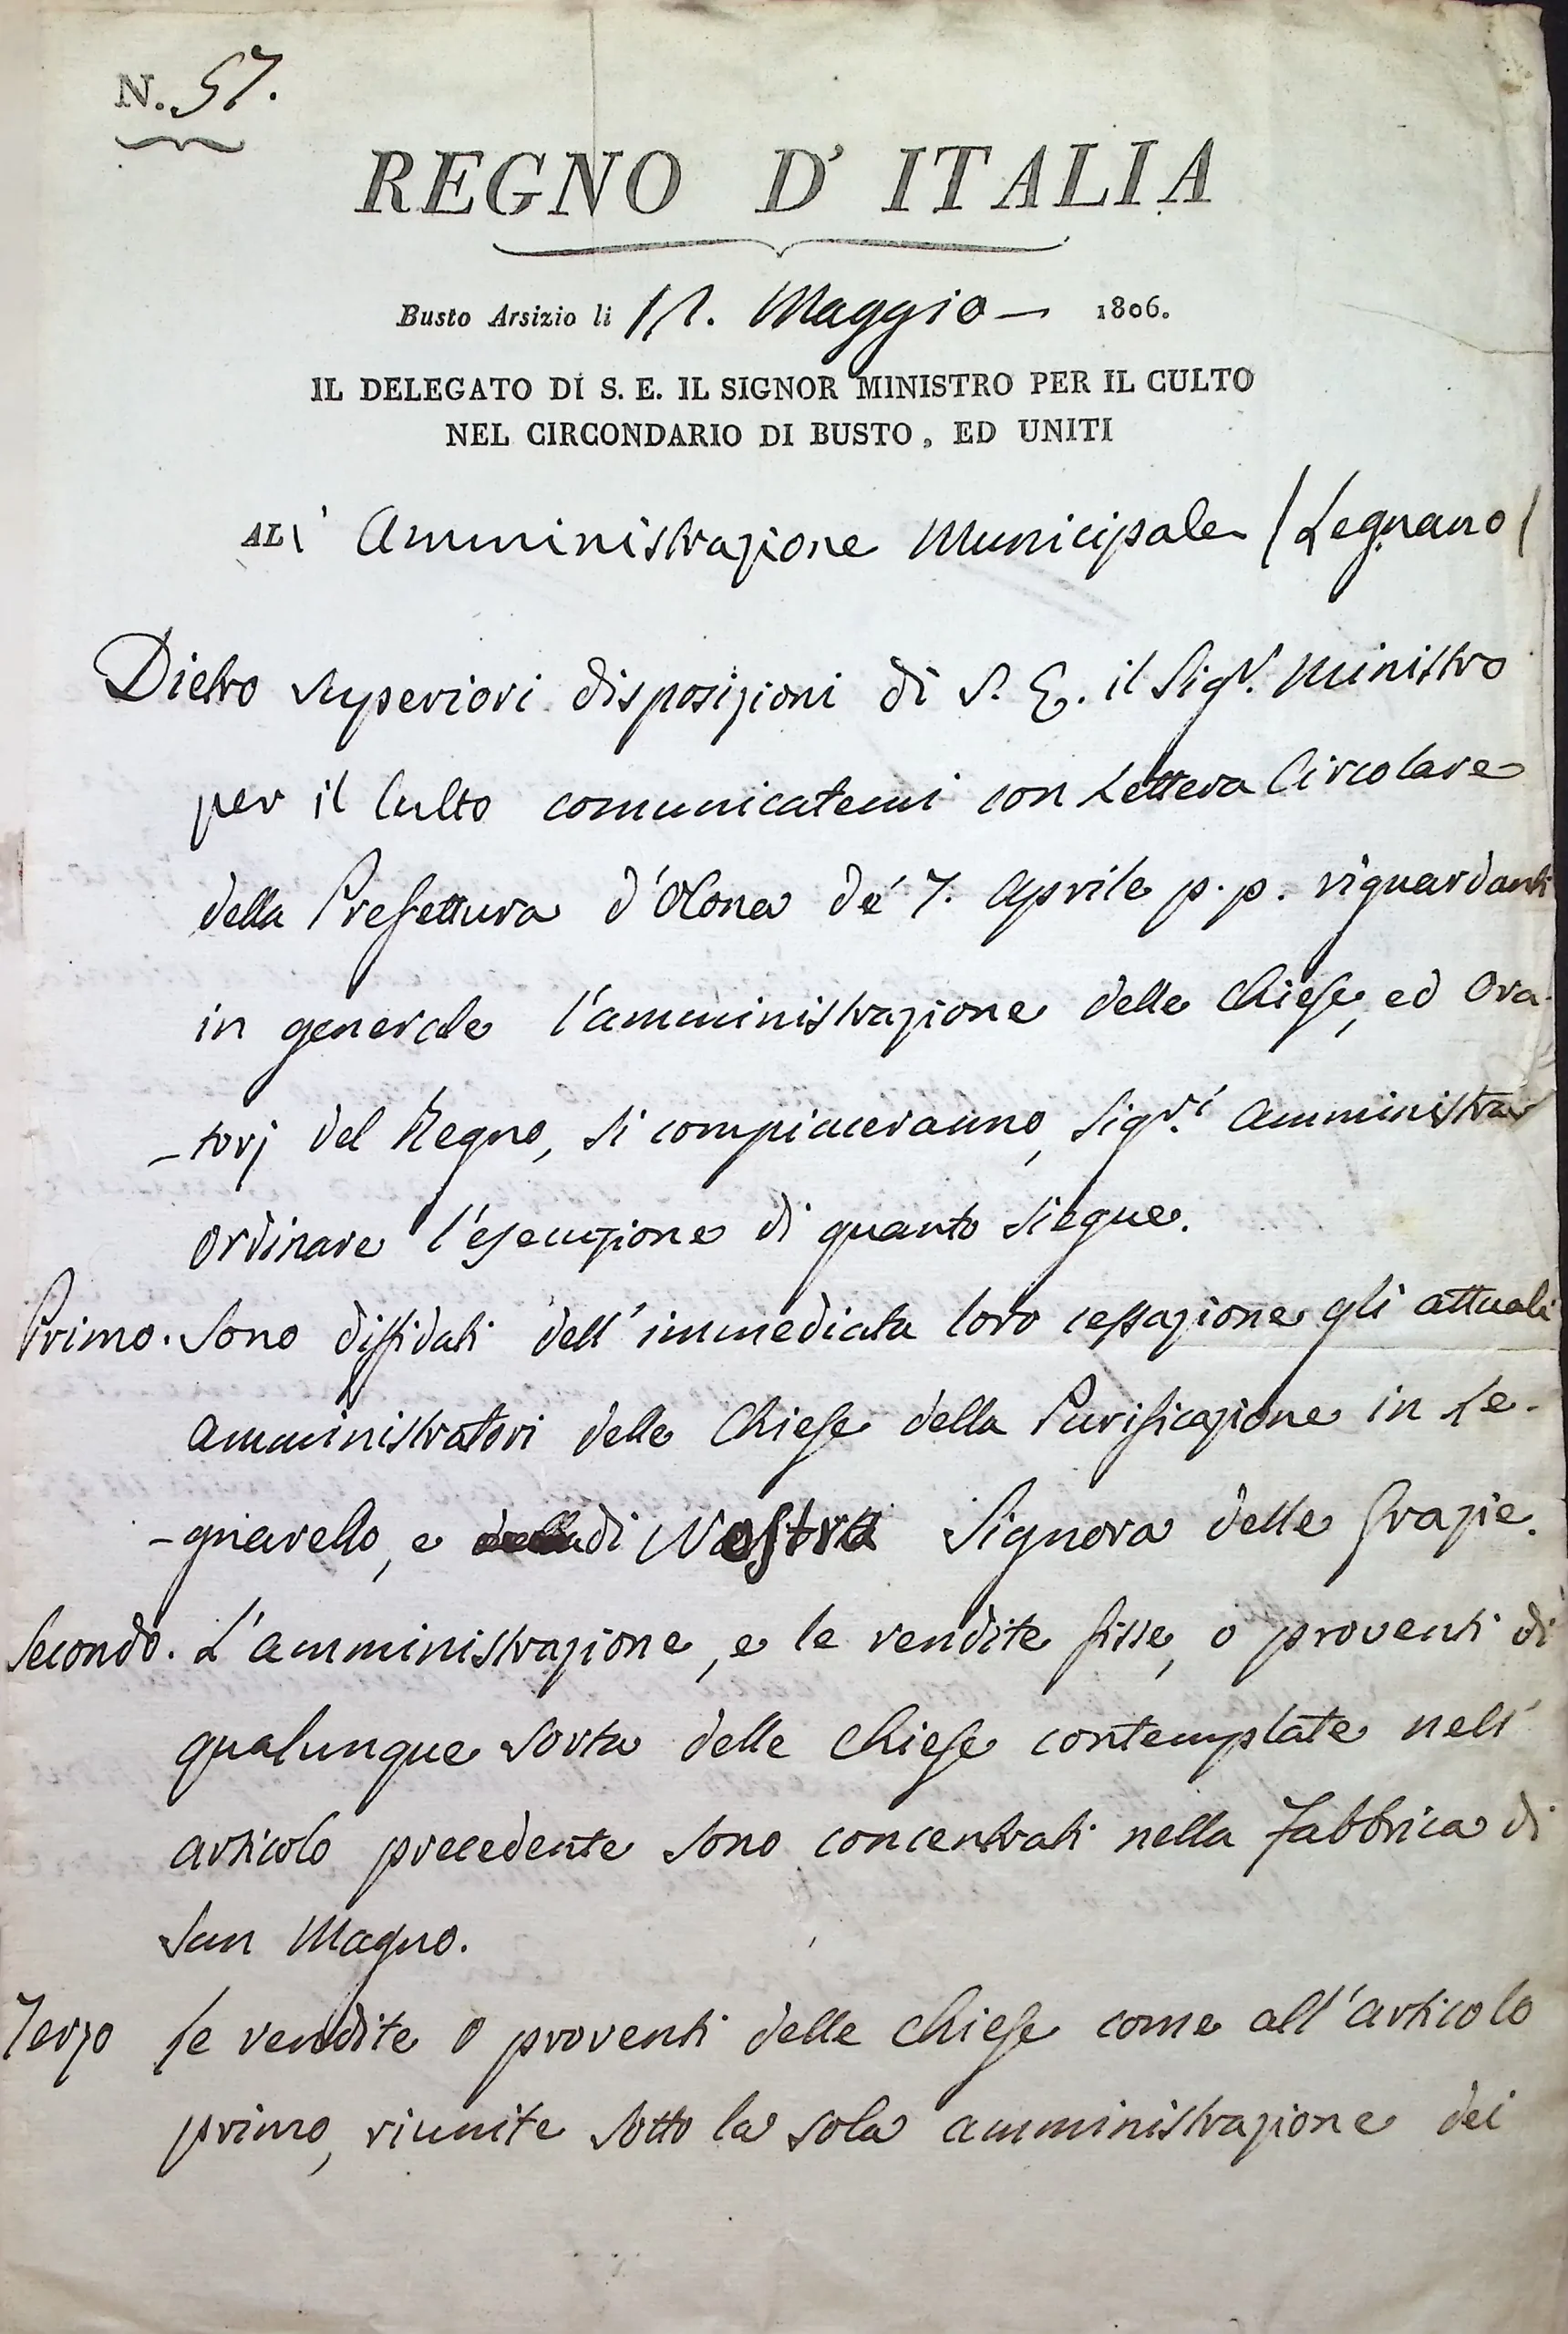 N. 57.
REGNO D' ITALIA
Busto Arsizio li 11. Maggio — 1806.
IL DELEGATO DI S. E. IL SIGNOR MINISTRO PER IL CULTO
NEL CIRCONDARIO DI BUSTO, ED UNITI
ALl' Amministrazione Municipale /Legnano/
Dietro superiori disposizioni di S. E. il Sigr. Ministro
per il Culto comunicatemi con Lettera Circolare
della Prefettura d'Olona de' 7. Aprile p. p. riguardanti
in generale l'amministrazione delle Chiese, ed Ora-
-torj del Regno, si compiaceranno, Sigri. Amministra
ordinare l'esecuzione di quanto siegue.
Primo. Sono diffidati dell'immediata loro cessazione gli attuali
amministratori delle Chiese della Purificazione in Le-
-gnarello, e di Nostra Signora delle Grazie.
Secondo. L'amministrazione, e le rendite fisse, o proventi di
qualunque sorta delle Chiese contemplate nell'
articolo precedente sono concentrati nella Fabbrica di
San Magno.
Terzo Le rendite o proventi delle Chiese come all'articolo
primo, riunite sotto la sola amministrazione dei